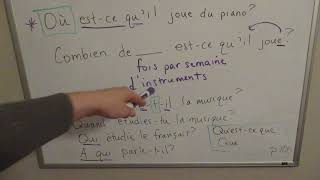 * Où est-ce qu'il joue du piano?
Combien de ____ est-ce qu'il joue?
fois par semaine
d'instruments
-il la musique?
Quand étudies-tu la musique?
Qui étudie le français?
À qui parle-t-il?
Qu'est-ce que